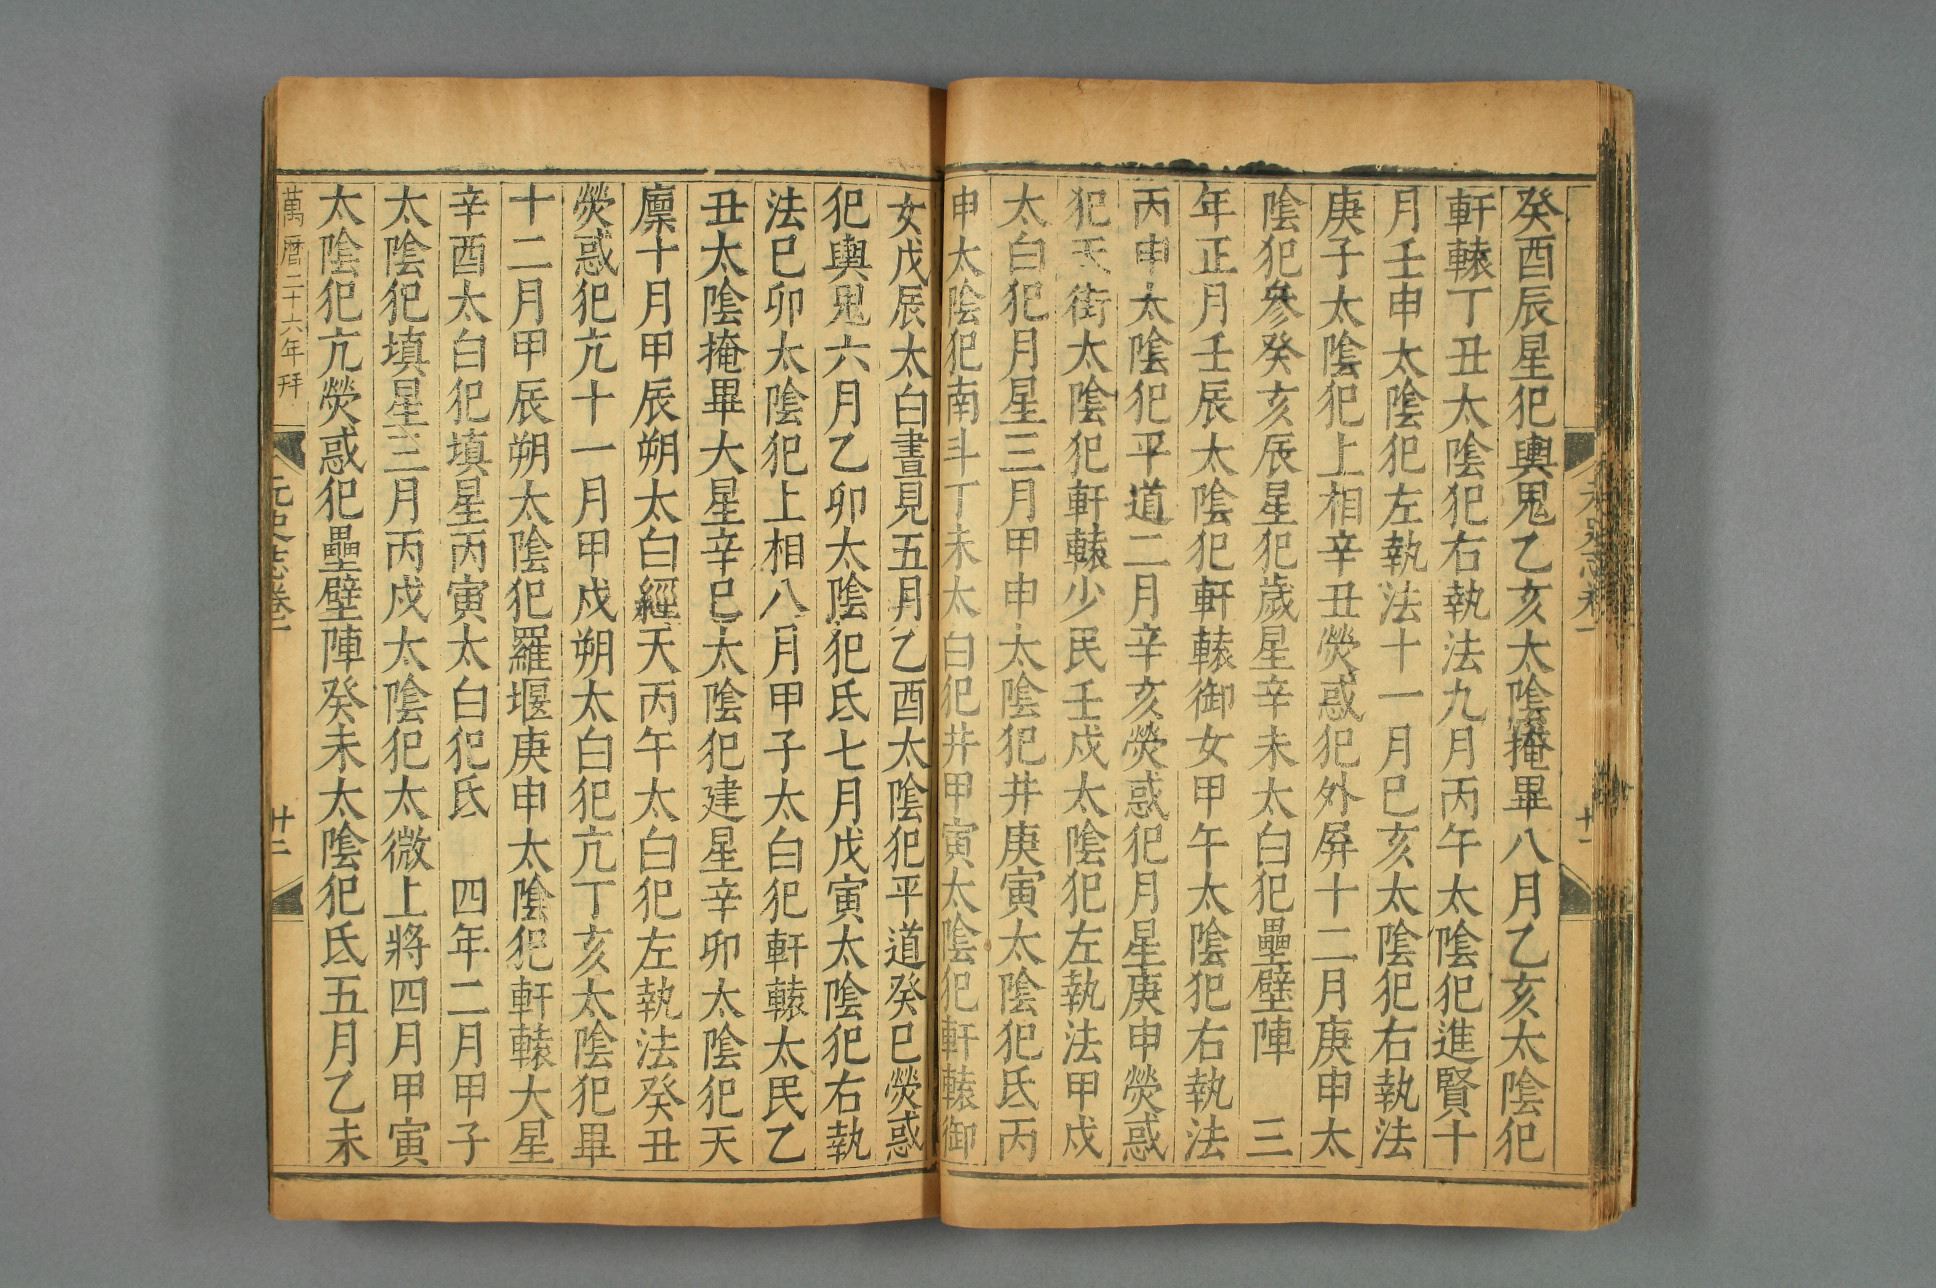 癸酉辰星犯輿鬼乙亥太陰掩畢八月乙亥太陰犯
軒轅丁丑太陰犯右執法九月丙午太陰犯進賢十
月壬申太陰犯左執法十一月己亥太陰犯右執法
庚子太陰犯上相辛丑熒惑犯外屏十二月庚申太
陰犯參癸亥辰星犯歲星辛未太白犯壘壁陣　三
年正月壬辰太陰犯軒轅御女甲午太陰犯右執法
丙申太陰犯平道二月辛亥熒惑犯月星庚申熒惑
犯天街太陰犯軒轅少民壬戌太陰犯左執法甲戌
太白犯月星三月甲申太陰犯井庚寅太陰犯氐丙
申太陰犯南斗丁未太白犯井甲寅太陰犯軒轅御
女戊辰太白晝見五月乙酉太陰犯平道癸巳熒惑
犯輿鬼六月乙卯太陰犯氐七月戊寅太陰犯右執
法巳卯太陰犯上相八月甲子太白犯軒轅太民乙
丑太陰掩畢大星辛巳太陰犯建星辛卯太陰犯天
廩十月甲辰朔太白經天丙午太白犯左執法癸丑
熒惑犯亢十一月甲戌朔太白犯亢丁亥太陰犯畢
十二月甲辰朔太陰犯羅堰庚申太陰犯軒轅大星
辛酉太白犯填星丙寅太白犯氐　四年二月甲子
太陰犯填星三月丙戌太陰犯太微上將四月甲寅
太陰犯亢熒惑犯壘壁陣癸未太陰犯氐五月乙未
萬曆二十六年刊
元史志卷一
廿二